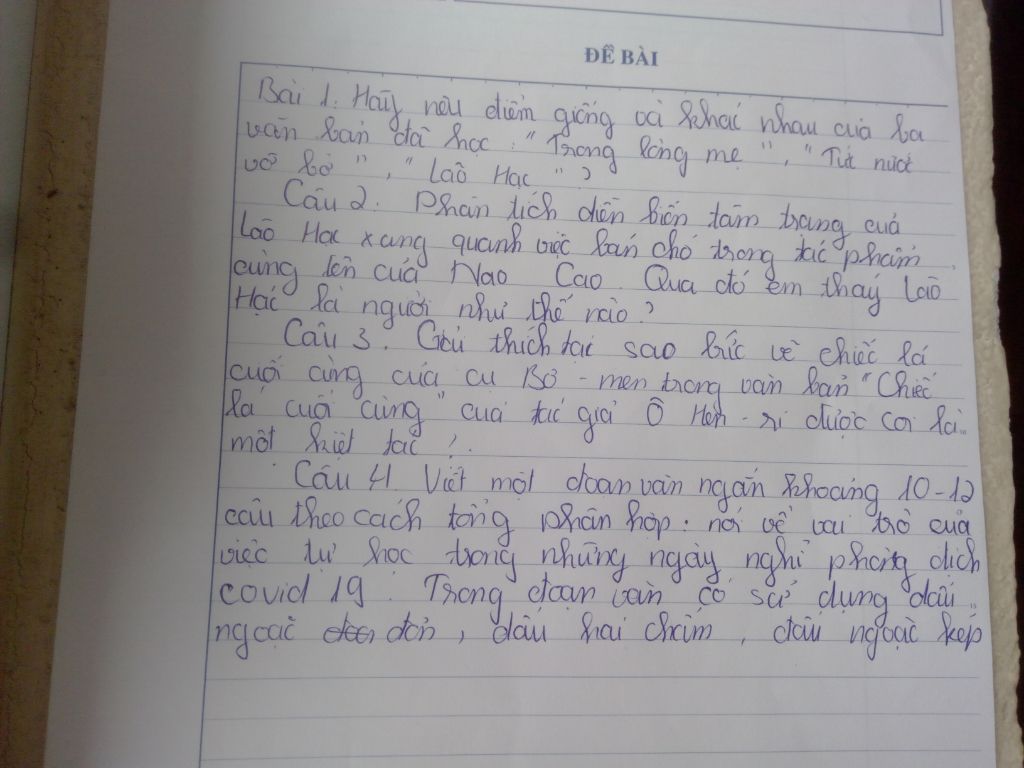 ĐỀ BÀI
Bài 1. Hãy nêu điểm giống và khác nhau của ba
văn bản đã học: "Trong lòng mẹ", "Tức nước
vỡ bờ", "Lão Hạc"?
Câu 2. Phân tích diễn biến tâm trạng của
Lão Hạc xung quanh việc bán chó trong tác phẩm
cùng tên của Nao Cao. Qua đó em thấy Lão
Hạc là người như thế nào?
Câu 3. Giải thích tại sao bức vẽ chiếc lá
cuối cùng của cụ Bơ-men trong văn bản "Chiếc
lá cuối cùng" của tác giả Ô Hen-ri được coi là
một kiệt tác?
Câu 4. Viết một đoạn văn ngắn khoảng 10-12
câu theo cách tổng phân hợp: nói về vai trò của
việc tự học trong những ngày nghỉ phòng dịch
covid 19. Trong đoạn văn có sử dụng dấu
ngoặc đơn, dấu hai chấm, dấu ngoặc kép